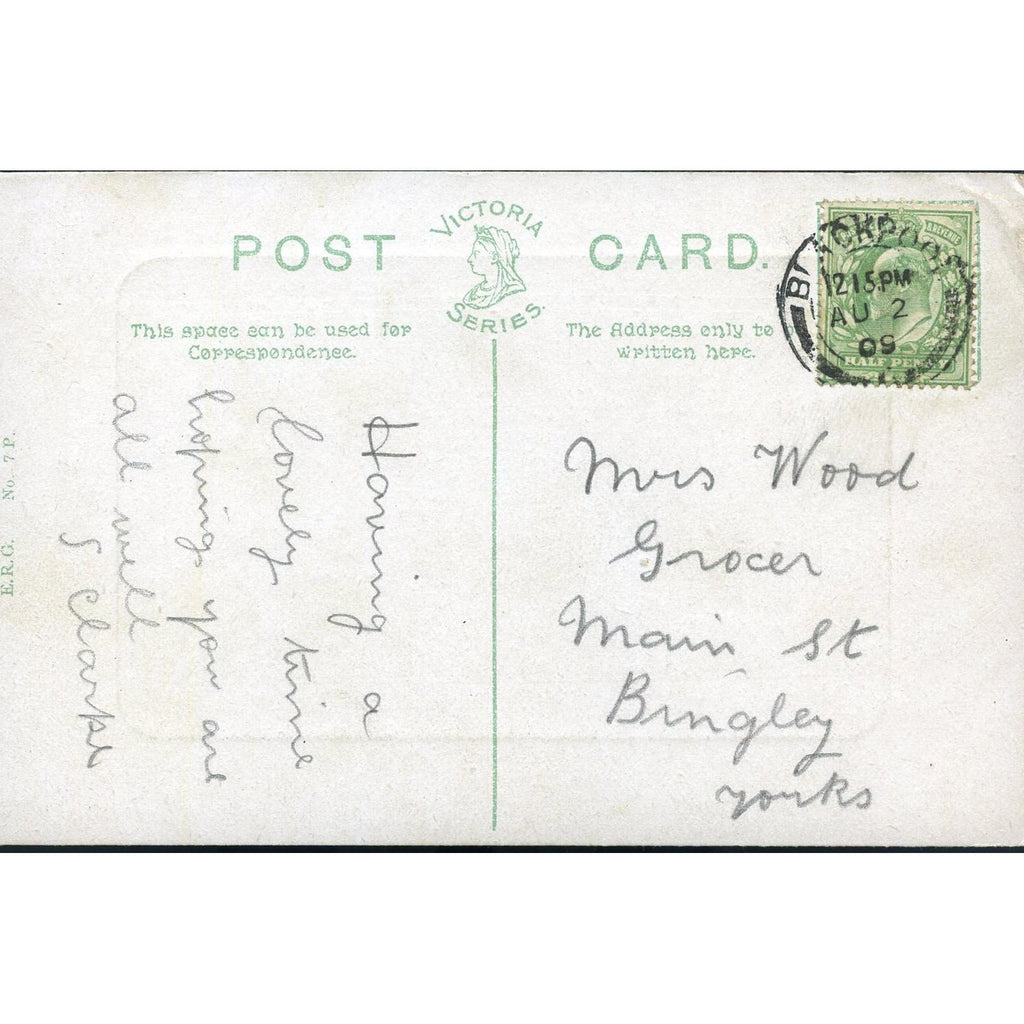 POST CARD.
VICTORIA
SERIES.
This space can be used for
Correspondence.
The Address only to
written here.
BLACKPOOL
12 15 PM
AU 2
09
REVENUE
HALF PENNY
Having a
lovely time
hoping you are
all well
S Clarke
Mrs Wood
Grocer
Main St
Bingley
yorks
E.R.G. No. 7 P.